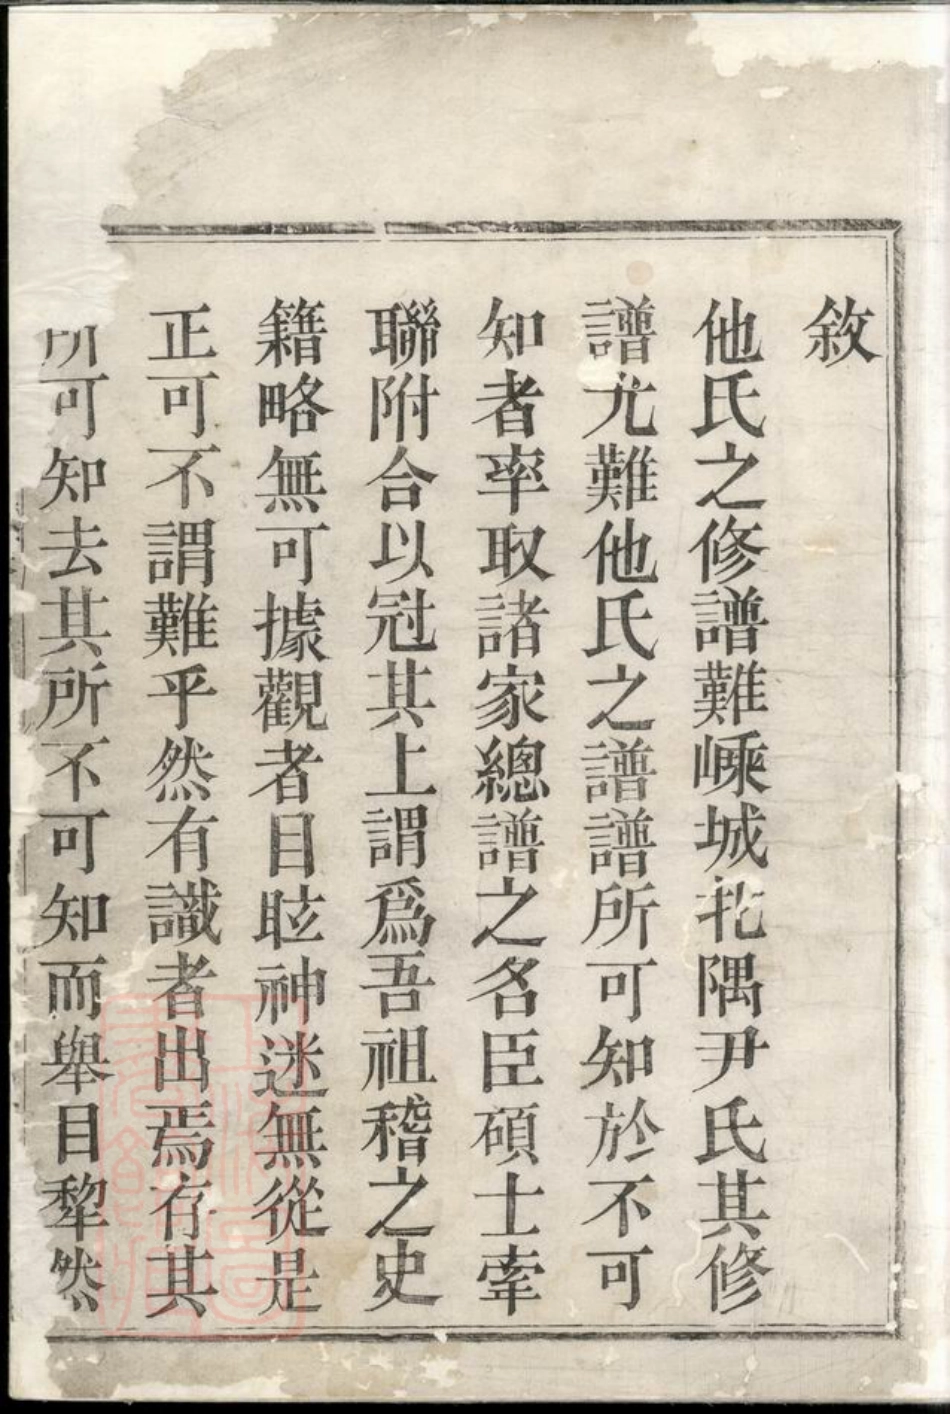 敘
他氏之修譜難嵊城北隅尹氏其修
譜尤難他氏之譜譜所可知於不可
知者率取諸家總譜之名臣碩士牽
聯附合以冠其上謂爲吾祖稽之史
籍略無可據觀者目眩神迷無從是
正可不謂難乎然有識者出焉存其
所可知去其所不可知而舉目犂然